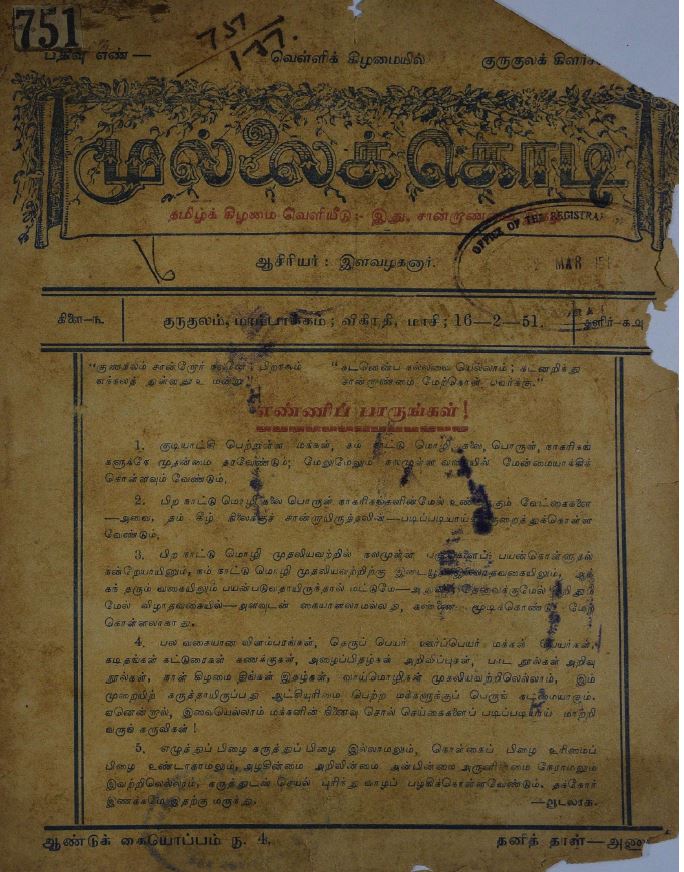 751
பதிவு எண் — 757 வெள்ளிக் கிழமையில் குருகுலக்
177.
முல்லைக்கொடி
தமிழ்க் கிழமை வெளியீடு:- இது,
OFFICE OF THE REGISTRAR
MAR
ஆசிரியர் : இளவழகனார்.
கிளை—௩ குருகுலம், ; விகிர்தி, மாசி; 16—2—51.
"குணநலம் சான்றோர் நலனே ; பிறநலம் "கடனென்ப நல்லவை யெல்லாம் ; கடனறிந்து
எந்நலத் துள்ளதூஉ மன்று." சான்றாண்மை மேற்கொள் பவர்க்கு."
எண்ணிப் பாருங்கள்!
1. குடியாட்சி பெற்றுள்ள மக்கள், தம் நாட்டு மொழி கலை, பொருள், நாகரிகங்
களுக்கே முதன்மை தரவேண்டும்; மேலுமேலும் நலமுள்ள வகையில் மேன்மையாக்கிக்
கொள்ளவும் வேண்டும்.
2. பிற நாட்டு மொழி கலை பொருள் நாகரிகங்களின்மேல் வேட்கைகளை
—அவை, தம் கீழ் நிலைக்குச் சான்றாயிருத்தலின்—படிப்படியாய்க் குறைத்துக்கொள்ள
வேண்டும்.
3. பிற நாட்டு மொழி முதலியவற்றில் நலமுள்ள பயன்கொள்ளுதல்
நன்றேயாயினும், நம் நாட்டு மொழி முதலியவற்றிற்கு ஆக்
கந் தரும் வகையிலும் பயன்படுவதாயிருந்தால் மட்டுமே—
மேல் விழாதவகையில்—அளவுடன் கையாளலாமல்லது, கண்ணை மூடிக்கொண்டு மேற்
கொள்ளலாகாது.
4. பல வகையான விளம்பரங்கள், தெருப் பெயர் ஊர்ப்பெயர் மக்கள் பெயர்கள்,
கடிதங்கள் கட்டுரைகள் கணக்குகள், அழைப்பிதழ்கள் அறிவிப்புகள், பாட நூல்கள் அறிவு
நூல்கள், நாள் கிழமை திங்கள் இதழ்கள், வாய்மொழிகள் முதலியவற்றிலெல்லாம், இம்
முறையிற் கருத்தாயிருப்பது ஆட்சியுரிமை பெற்ற மக்களுக்குப் பெருங் கடமையாகும்.
ஏனென்றால், இவையெல்லாம் மக்களின் நினைவு சொல் செய்கைகளைப் படிப்படியாய் மாற்றி
வருங் கருவிகள் !
5. எழுத்துப் பிழை கருத்துப் பிழை இல்லாமலும், கொள்கைப் பிழை உரிமைப்
பிழை உண்டாகாமலும், அழகின்மை அறிவின்மை அன்பின்மை அருளின்மை நேராமலும்
இவற்றிலெல்லாம், கருத்துடன் செயல் புரிந்து வாழப் பழகிக்கொள்ளவேண்டும். தக்கோர்
இணக்கமே இதற்கு மருந்து.
ஆண்டுக் கையொப்பம் ரூ. 4. தனித் தாள்—